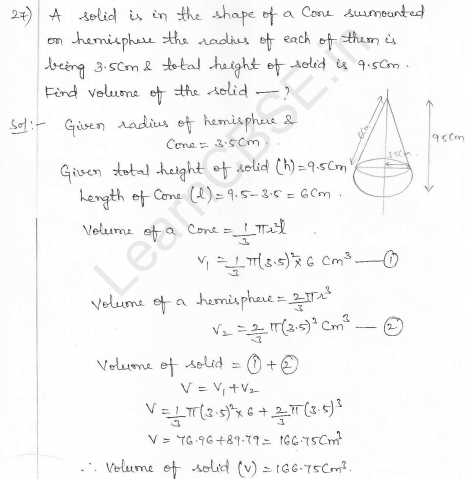 27) A solid is in the shape of a Cone surmounted
on hemisphere the radius of each of them is
being 3.5Cm & total height of solid is 9.5cm.
Find volume of the solid — ?
Sol:- Given radius of hemisphere &
Cone = 3.5Cm.
Given total height of solid (h) = 9.5Cm
Length of Cone (l) = 9.5-3.5 = 6Cm.
6cm
3.5Cm
9.5Cm
Volume of a Cone = 1/3 πr²l
V₁ = 1/3 π(3.5)² × 6 Cm³ — ①
Volume of a hemisphere = 2/3 πr³
V₂ = 2/3 π(3.5)³ Cm³ — ②
Volume of solid = ① + ②
V = V₁ + V₂
V = 1/3 π(3.5)² × 6 + 2/3 π(3.5)³
V = 76.96 + 89.79 = 166.75Cm³
∴ Volume of solid (V) = 166.75Cm³.
LearnCBSE.in